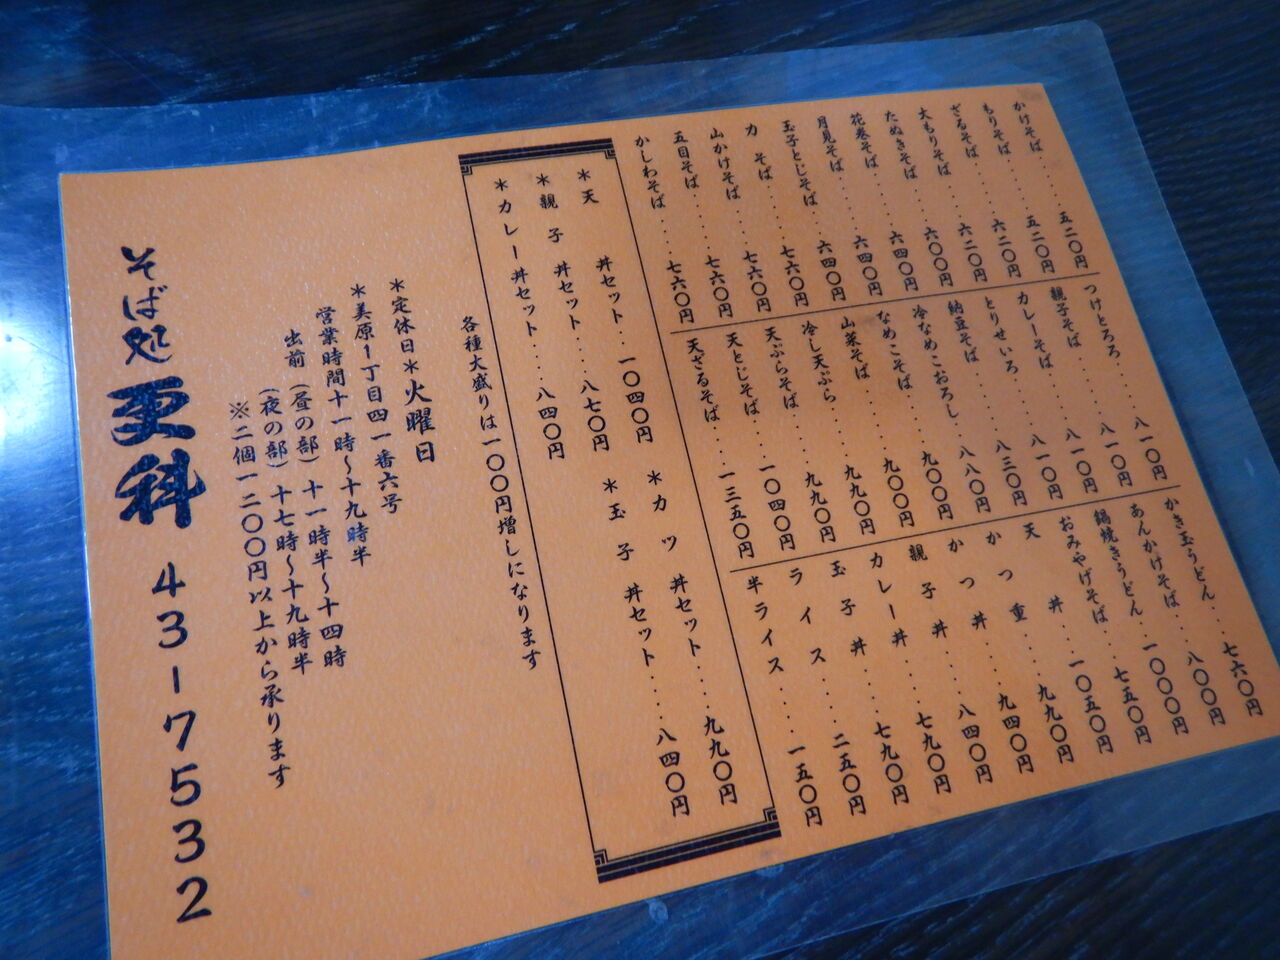 かけそば……五二〇円
もりそば……五二〇円
ざるそば……六二〇円
大もりそば……六二〇円
たぬきそば……六〇〇円
花巻そば……六四〇円
月見そば……六四〇円
玉子とじそば……六四〇円
力そば……七六〇円
山かけそば……七六〇円
五目そば……七六〇円
かしわそば……七六〇円
つけとろろ……八一〇円
親子そば……八一〇円
カレーそば……八一〇円
とりせいろ……八一〇円
納豆そば……八三〇円
冷なめこおろし……八八〇円
なめこそば……九〇〇円
山菜そば……九〇〇円
冷し天ぷら……九九〇円
天ぷらそば……九九〇円
天とじそば……一〇四〇円
天ざるそば……一三五〇円
かき玉うどん……七六〇円
あんかけそば……八〇〇円
鍋焼きうどん……一〇〇〇円
おみやげそば……七五〇円
天丼……一〇五〇円
かつ重……九九〇円
かつ丼……九四〇円
親子丼……八四〇円
カレー丼……七九〇円
玉子丼……七九〇円
ライス……二五〇円
半ライス……一五〇円
＊天丼セット……一〇四〇円
＊カツ丼セット……九九〇円
＊親子丼セット……八七〇円
＊玉子丼セット……八四〇円
＊カレー丼セット……八四〇円
各種大盛りは一〇〇円増しになります
＊定休日＊火曜日
＊美原1丁目四一番六号
営業時間十一時～十九時半
出前（昼の部）十一時半～十四時
（夜の部）十七時～十九時半
※二個一二〇〇円以上から承ります
そば処 更科 43-7532